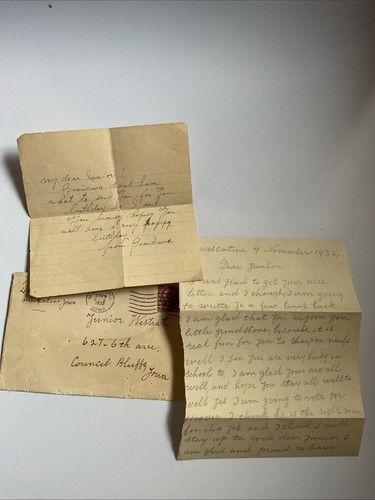 my dear Junior
Grandma dont know
what to send you for your
birthday so I send
you money hoping you
will have a very happy
birthday
from Grandma
Muscatine Iowa
1932
IOWA
Junior
627-6th ave.
Council Bluffs
Iowa
Muscatine 4 November 1932
Dear Junior
I was glad to get your nice
letter and I though I am going
to write to a few lines back
I am glad that you enjoy your
little grindstone because it is
real fun for you to sharpen naifs
well I see you are very busy in
school to I am glad your are all
well and hope you stay all well to
well yet I am going to vote for
Hoover I think he is the right man
for the Job and I think I will
stay up to well dear Junior I
am glad and proud to have